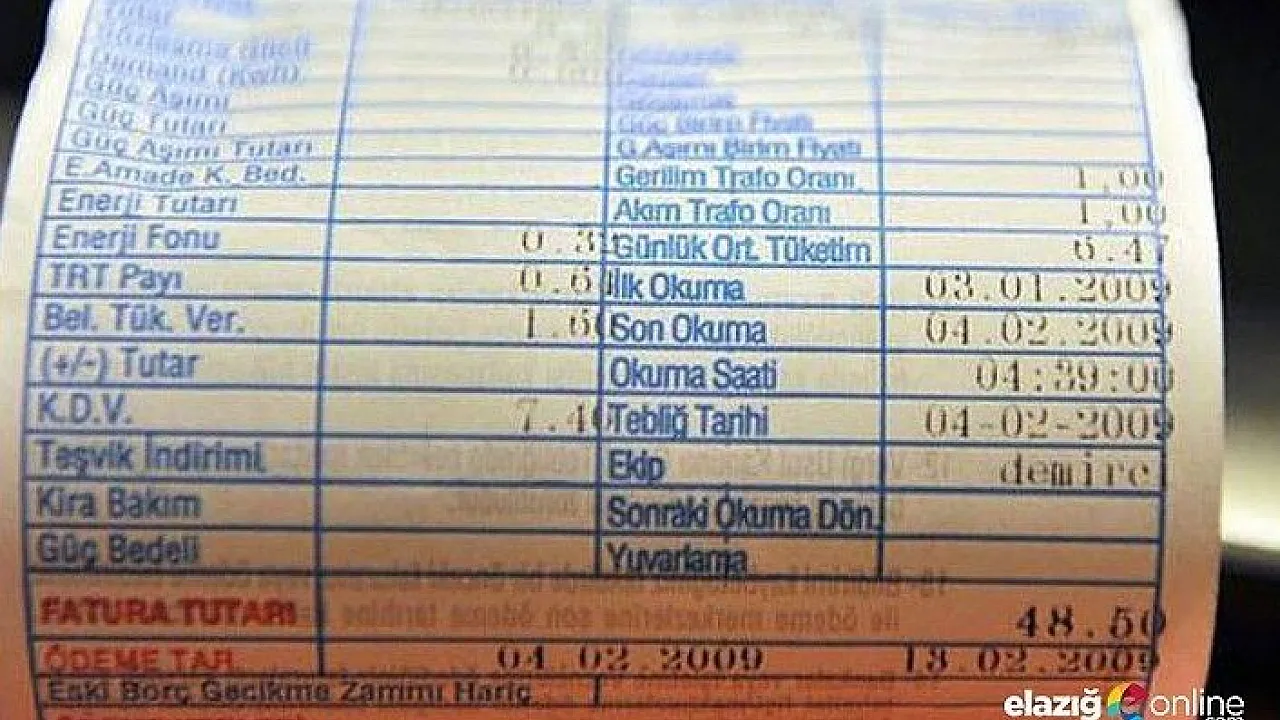 Tutar
Demand (Kwh)
Güç Aşımı
Güç Tutarı Güç Birim Fiyatı
Güç Aşımı Tutarı G.Aşımı Birim Fiyatı
E.Amade K. Bed. Gerilim Trafo Oranı 1,00
Enerji Tutarı Akım Trafo Oranı 1,00
Enerji Fonu 0.3 Günlük Ort. Tüketim 6.47
TRT Payı 0.6 İlk Okuma 03.01.2009
Bel. Tük. Ver. 1.6 Son Okuma 04.02.2009
(+/-) Tutar Okuma Saati 04:39:00
K.D.V. 7.4 Tebliğ Tarihi 04-02-2009
Teşvik İndirimi Ekip demire
Kira Bakım Sonraki Okuma Dön.
Güç Bedeli Yuvarlama
FATURA TUTARI 48.50
ÖDEME TAR. 04.02.2009 13.02.2009
Eski Borç Gecikme Zammı Hariç
elazığ online